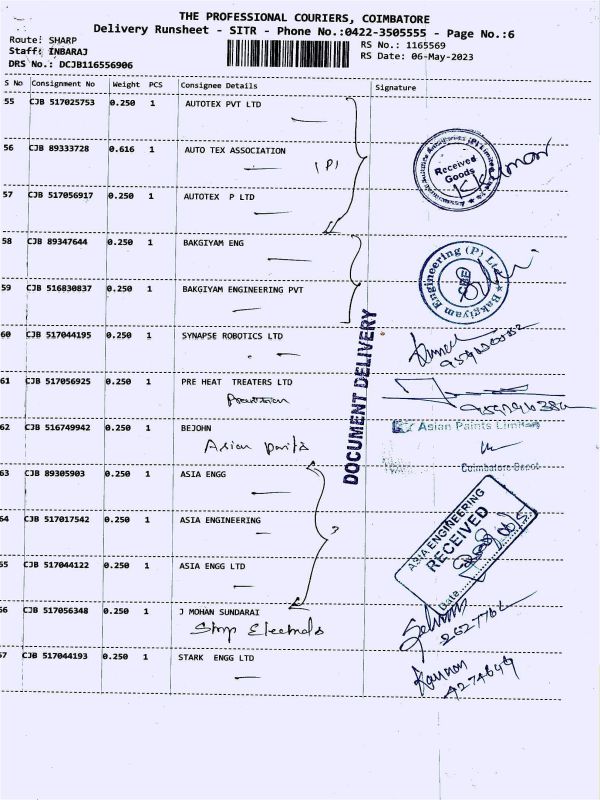 THE PROFESSIONAL COURIERS, COIMBATORE
Delivery Runsheet - SITR - Phone No.:0422-3505555 - Page No.:6
Route: SHARP
RS No.: 1165569
Staff: INBARAJ
RS Date: 06-May-2023
DRS No.: DCJB116556906
S No Consignment No Weight PCS Consignee Details Signature
55 CJB 517025753 0.250 1 AUTOTEX PVT LTD
56 CJB 89333728 0.616 1 AUTO TEX ASSOCIATION
(P)
Received
Goods
57 CJB 517056917 0.250 1 AUTOTEX P LTD
58 CJB 89347644 0.250 1 BAKGIYAM ENG
Bakgiyam Engineering (P) Ltd
59 CJB 516830837 0.250 1 BAKGIYAM ENGINEERING PVT
60 CJB 517044195 0.250 1 SYNAPSE ROBOTICS LTD
DOCUMENT DELIVERY
61 CJB 517056925 0.250 1 PRE HEAT TREATERS LTD
62 CJB 516749942 0.250 1 BEJOHN
Asian Paints Limited
Asian Paints
Coimbatore Depot
63 CJB 89305903 0.250 1 ASIA ENGG
64 CJB 517017542 0.250 1 ASIA ENGINEERING
ASIA ENGINEERING
RECEIVED
Date
65 CJB 517044122 0.250 1 ASIA ENGG LTD
66 CJB 517056348 0.250 1 J MOHAN SUNDARAI
Shop Electricals
67 CJB 517044193 0.250 1 STARK ENGG LTD